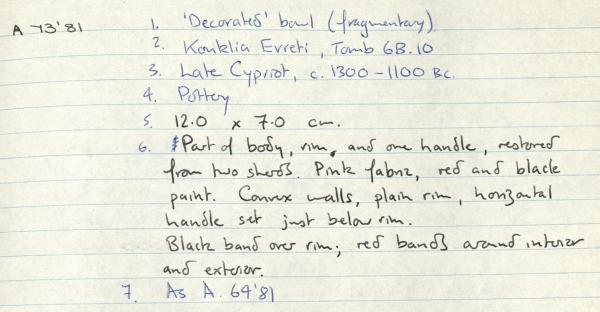 A 73'81
1. 'Decorated' bowl (fragmentary).
2. Kouklia Evreti, Tomb GB.10
3. Late Cypriot, c. 1300 – 1100 BC.
4. Pottery
5. 12.0 x 7.0 cm.
6. Part of body, rim, and one handle, restored
from two sherds. Pink fabric, red and black
paint. Convex walls, plain rim, horizontal
handle set just below rim.
Black band over rim; red bands around interior
and exterior.
7. As A. 64'81